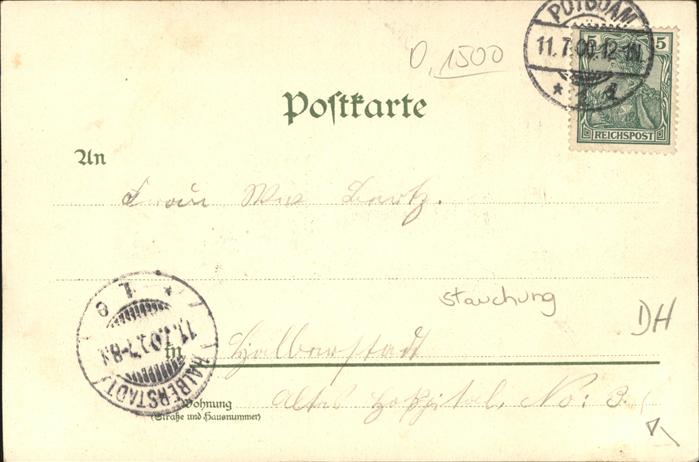 POTSDAM
11.7.00.12-1N.
5 5
REICHSPOST
0,1500
Postkarte
An
Frau Wwe Bartz.
Stauchung
DH
HALBERSTADT
11.7.00.7-8N
* 1 c
in Halberstadt
Wohnung
(Straße und Hausnummer)
Altes Hospital, No: 3.